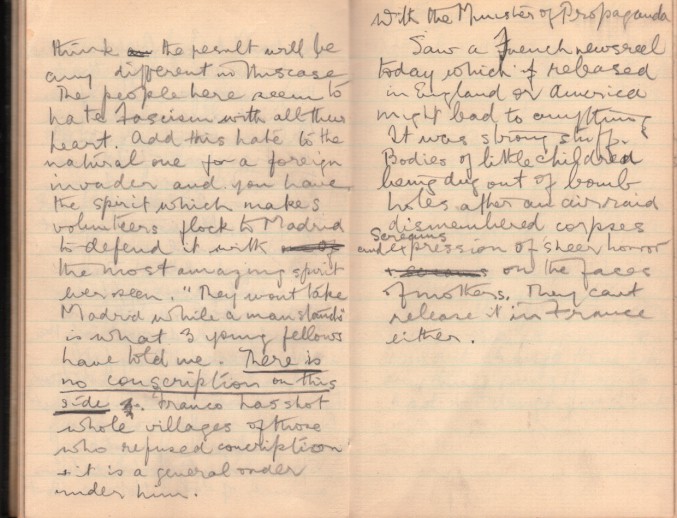 think the result will be
any different in this case
The people here seem to
hate Fascism with all their
heart. Add this hate to the
natural one for a foreign
invader and you have
the spirit which makes
volunteers flock to Madrid
to defend it with
the most amazing spirit
ever seen. "They wont take
Madrid while a man stands"
is what 3 young fellows
have told me. There is
no conscription on this
side. Franco has shot
whole villages of those
who refused conscription
+ it is a general order
under him.
with the Minister of Propaganda
Saw a French newsreel
today which if released
in England or America
might lead to anything
It was strong stuff.
Bodies of little children
being dug out of bomb
holes after an air raid
dismembered corpses
Screams
and expression of sheer horror
on the faces
of mothers. They cant
release it in France
either.